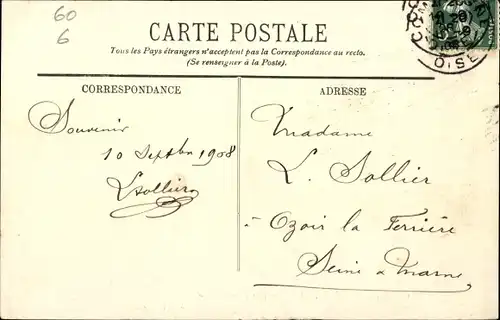 60
6
CARTE POSTALE
Tous les Pays étrangers n'acceptent pas la Correspondance au recto.
(Se renseigner à la Poste).
CORRESPONDANCE
ADRESSE
Souvenir
10 Septbre 1908
LSollier
Madame
L. Sollier
à Ozoir la Ferrière
Seine & Marne
OISE